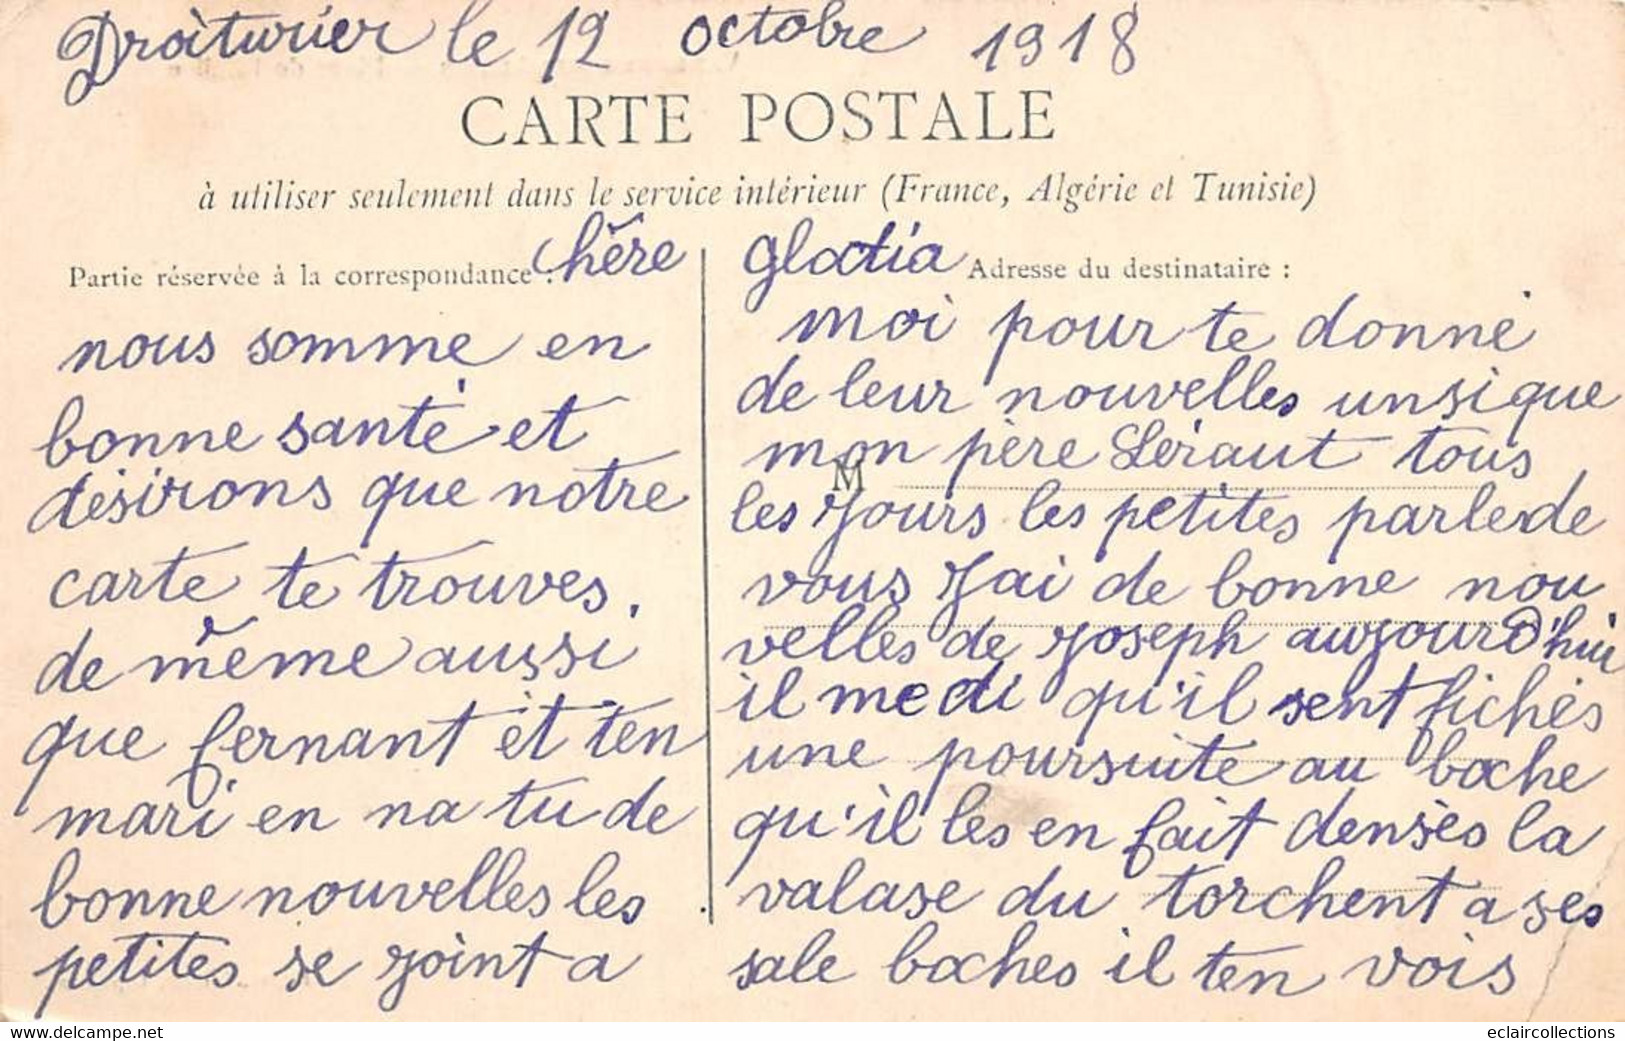 Droiturier le 12 octobre 1918
CARTE POSTALE
à utiliser seulement dans le service intérieur (France, Algérie et Tunisie)
Partie réservée à la correspondance :
chère
nous somme en
bonne santé et
désirons que notre
carte te trouves
de même aussi
que fernant et ten
mari en na tu de
bonne nouvelles les
petites se joint a
Adresse du destinataire :
moi pour te donné
de leur nouvelles unsi que
mon père Leraut tous
M
les jours les petites parlende
vous jai de bonne nou
velles de joseph aujourd'hui
il me di qu'il sent fichés
une poursuite au boche
qu'il les en fait densés la
valase du torchent a ses
sale boches il ten vois
eclaircollections